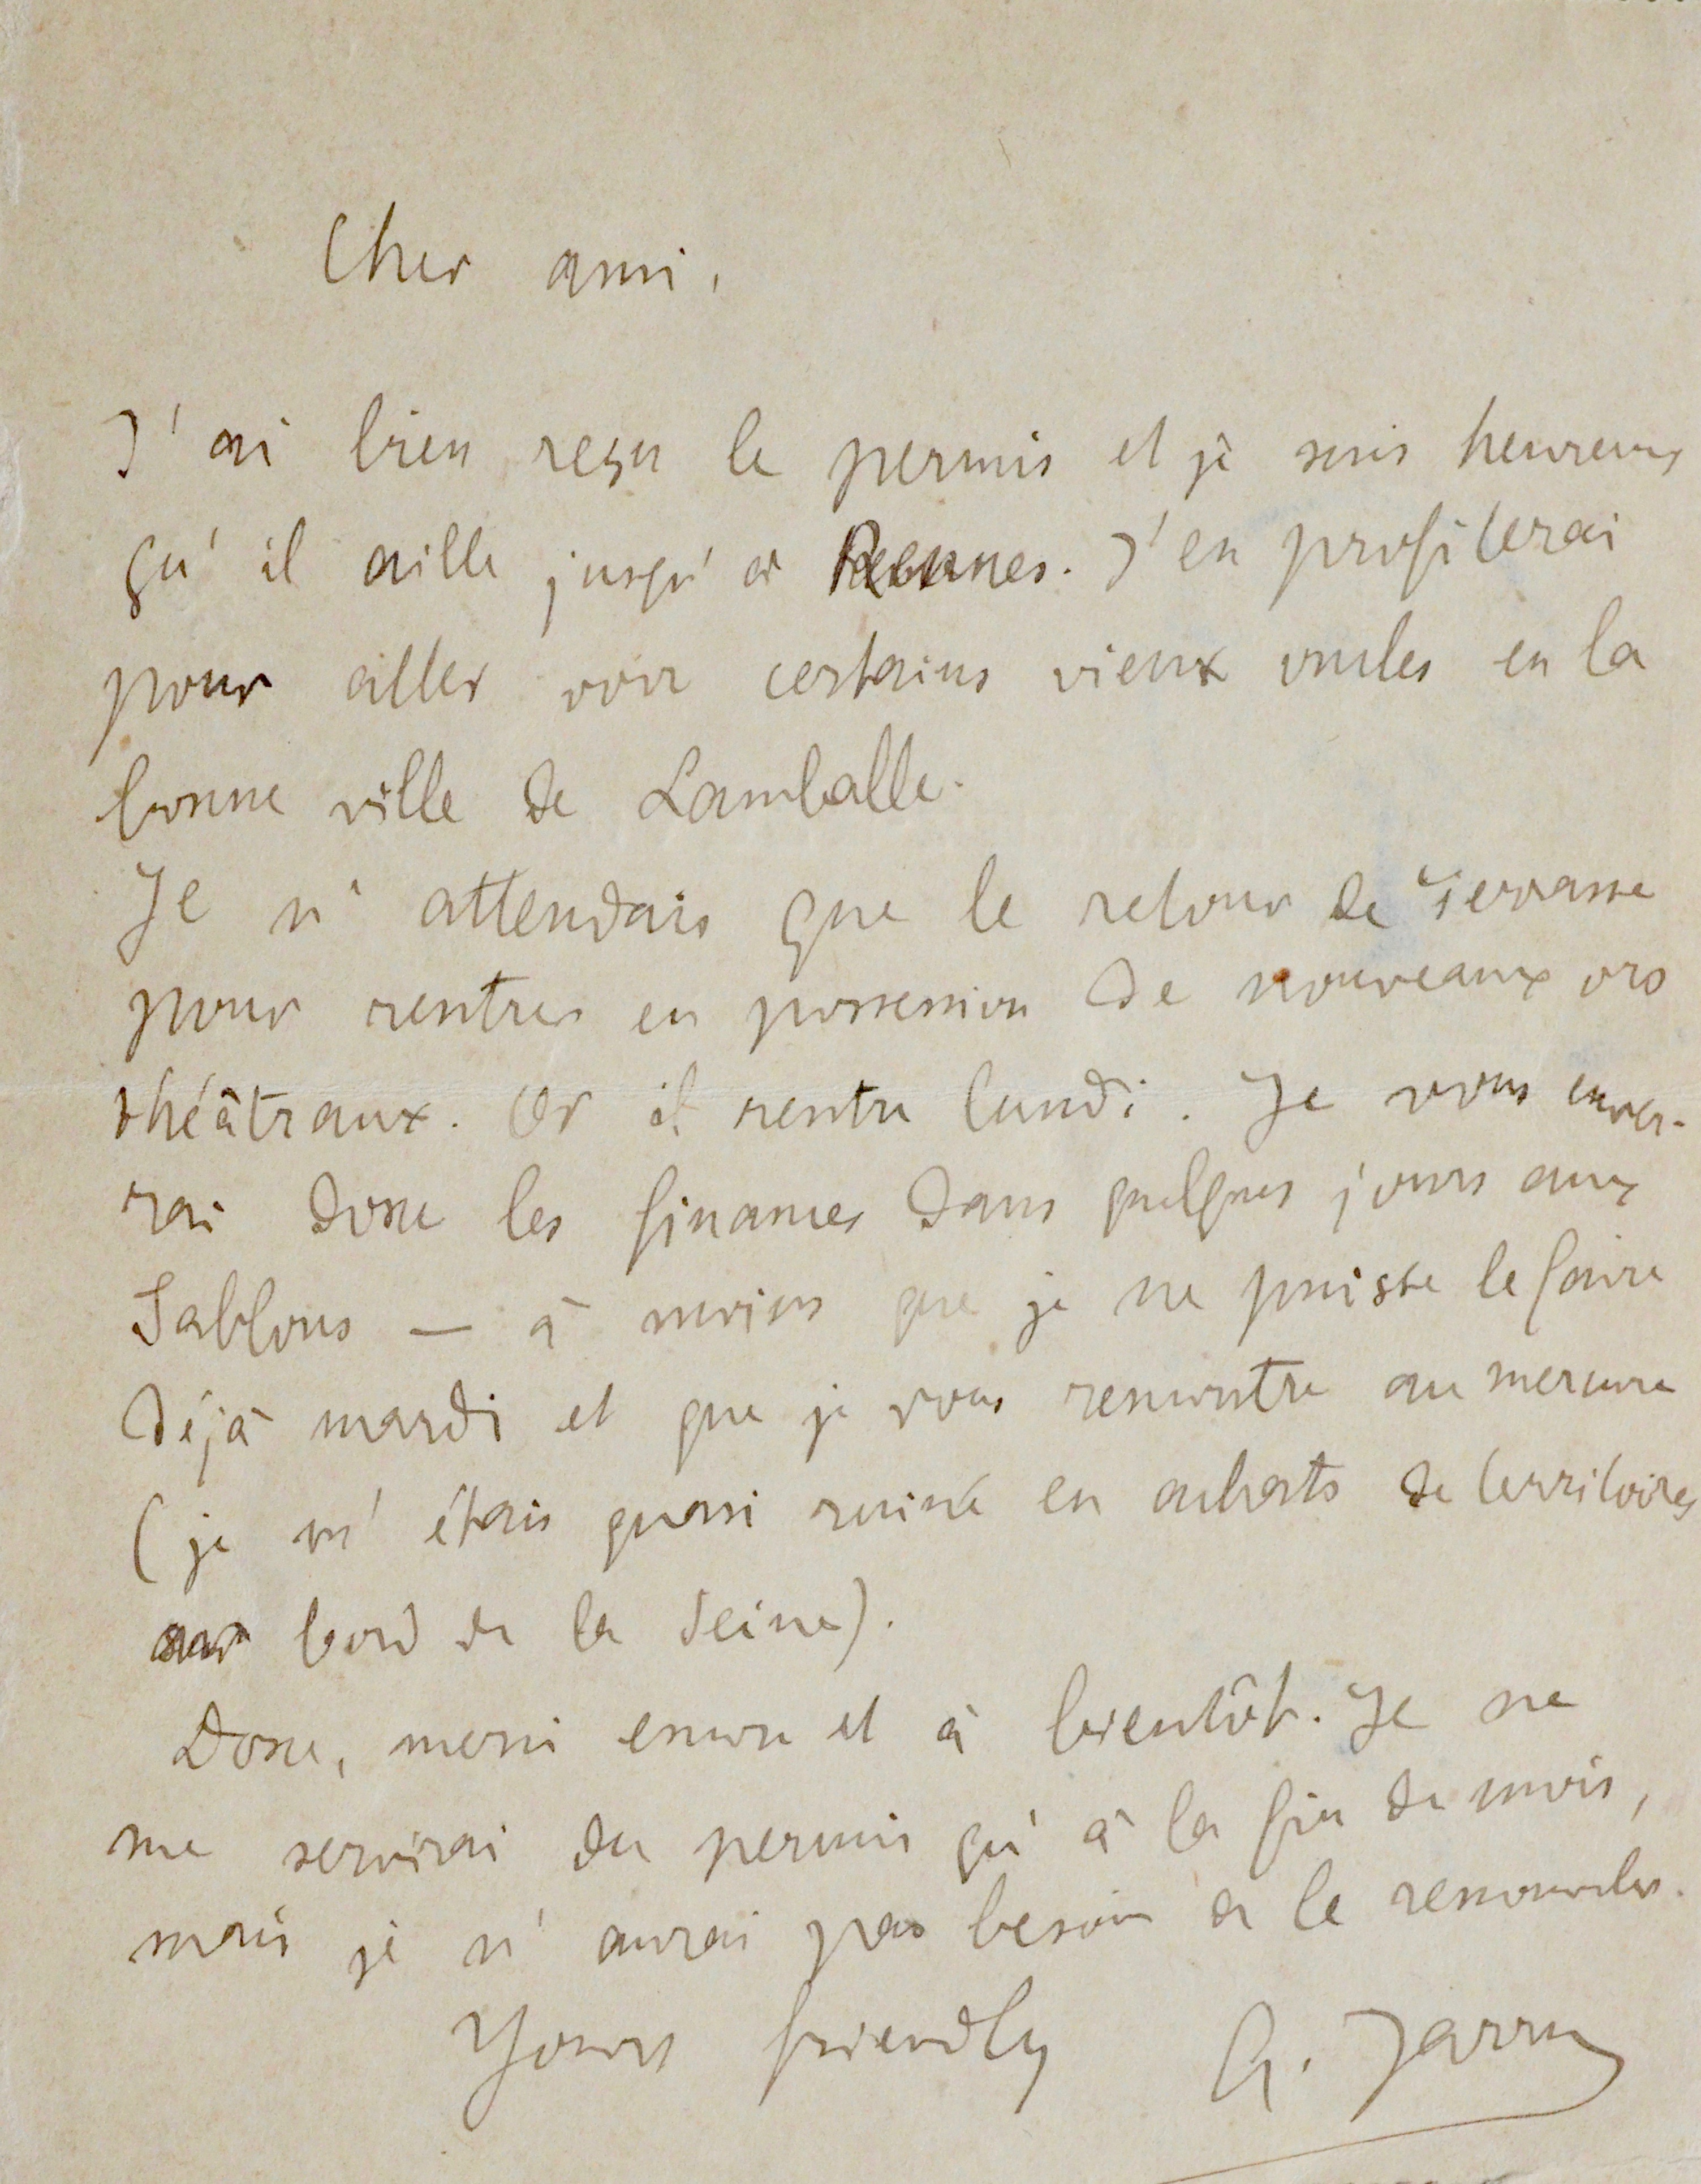 Cher ami,
J'ai bien reçu le permis et je suis heureux
qu'il aille jusqu'à Rennes. J'en profiterai
pour aller voir certains vieux oncles en la
bonne ville de Lamballe.
Je n'attendais que le retour de Terrasse
pour rentrer en possession de nouveaux ors
théâtraux. Or il rentre lundi. Je vous enver-
rai donc les finances dans quelques jours aux
Sablons — à moins que je ne puisse le faire
déjà mardi et que je vous rencontre au mercure
(je m'étais quasi ruiné en achats de territoires
au bord de la Seine).
Donc, merci encore et à bientôt. Je ne
me servirai du permis qu'à la fin du mois,
mais je n'aurai pas besoin de le renouveler.
Yours friendly A. Jarry